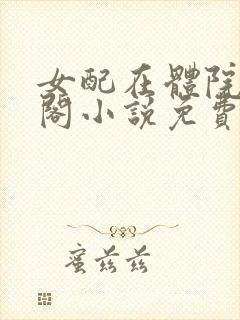 女配在體院
閣小說免費
蜜茲茲